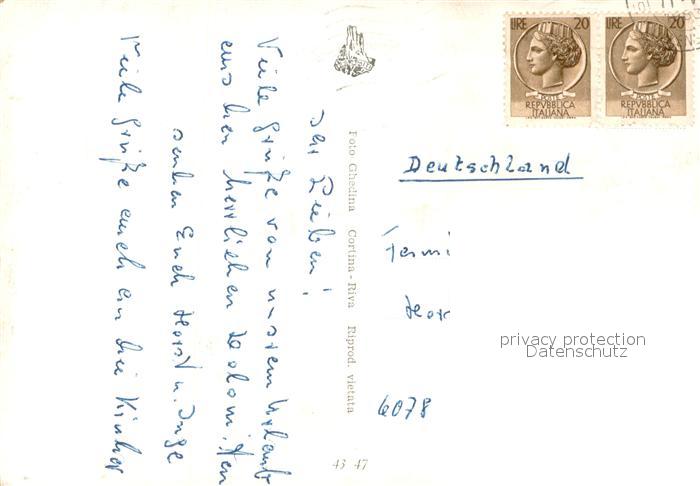 Ihr Lieben!
Viele Grüße von unserem Urlaub
aus den herrlichen Dolomiten
senden Euch Horst u. Inge
Viele Grüße auch an die Kinder
Foto Ghedina Cortina - Riva Riprod. vietata
43 47
LIRE 20
POSTE
REPVBBLICA
ITALIANA
LIRE 20
POSTE
REPVBBLICA
ITALIANA
Deutschland
Fami
Hor
privacy protection
Datenschutz
6078